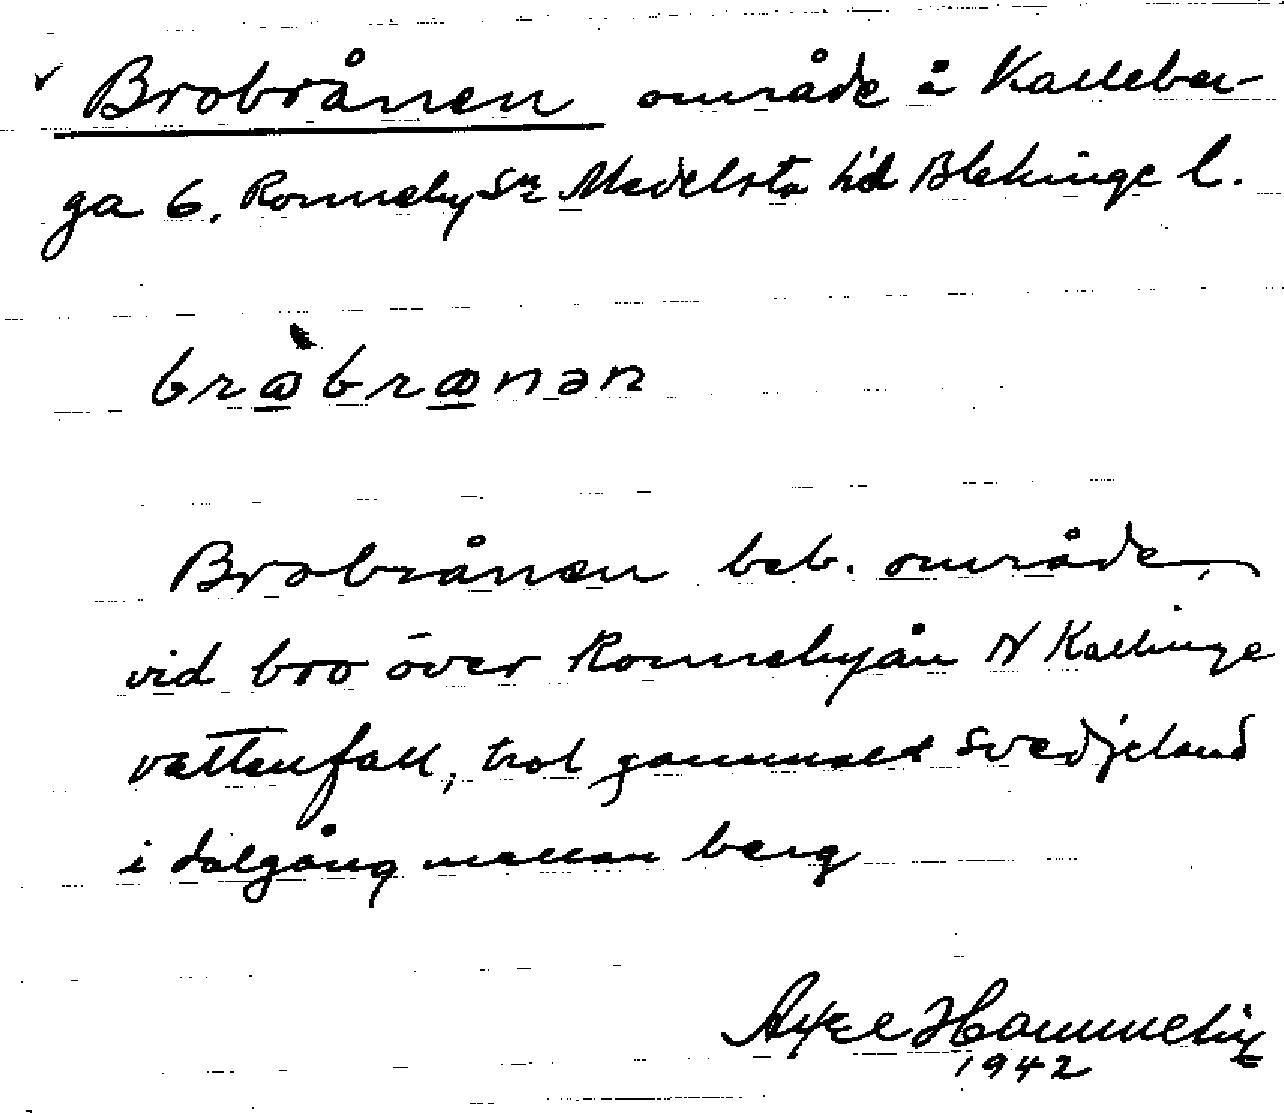 Brobrånen område å Kalleber-
ga 6, Ronneby Sn Medelsta hd Blekinge l.
brꜵbrꜵnən
Brobrånen beb. område,
vid bro över Ronnebyån N Kallinge
vattenfall, trol gammalt svedjeland
i dalgång mellan berg
Axel
1942